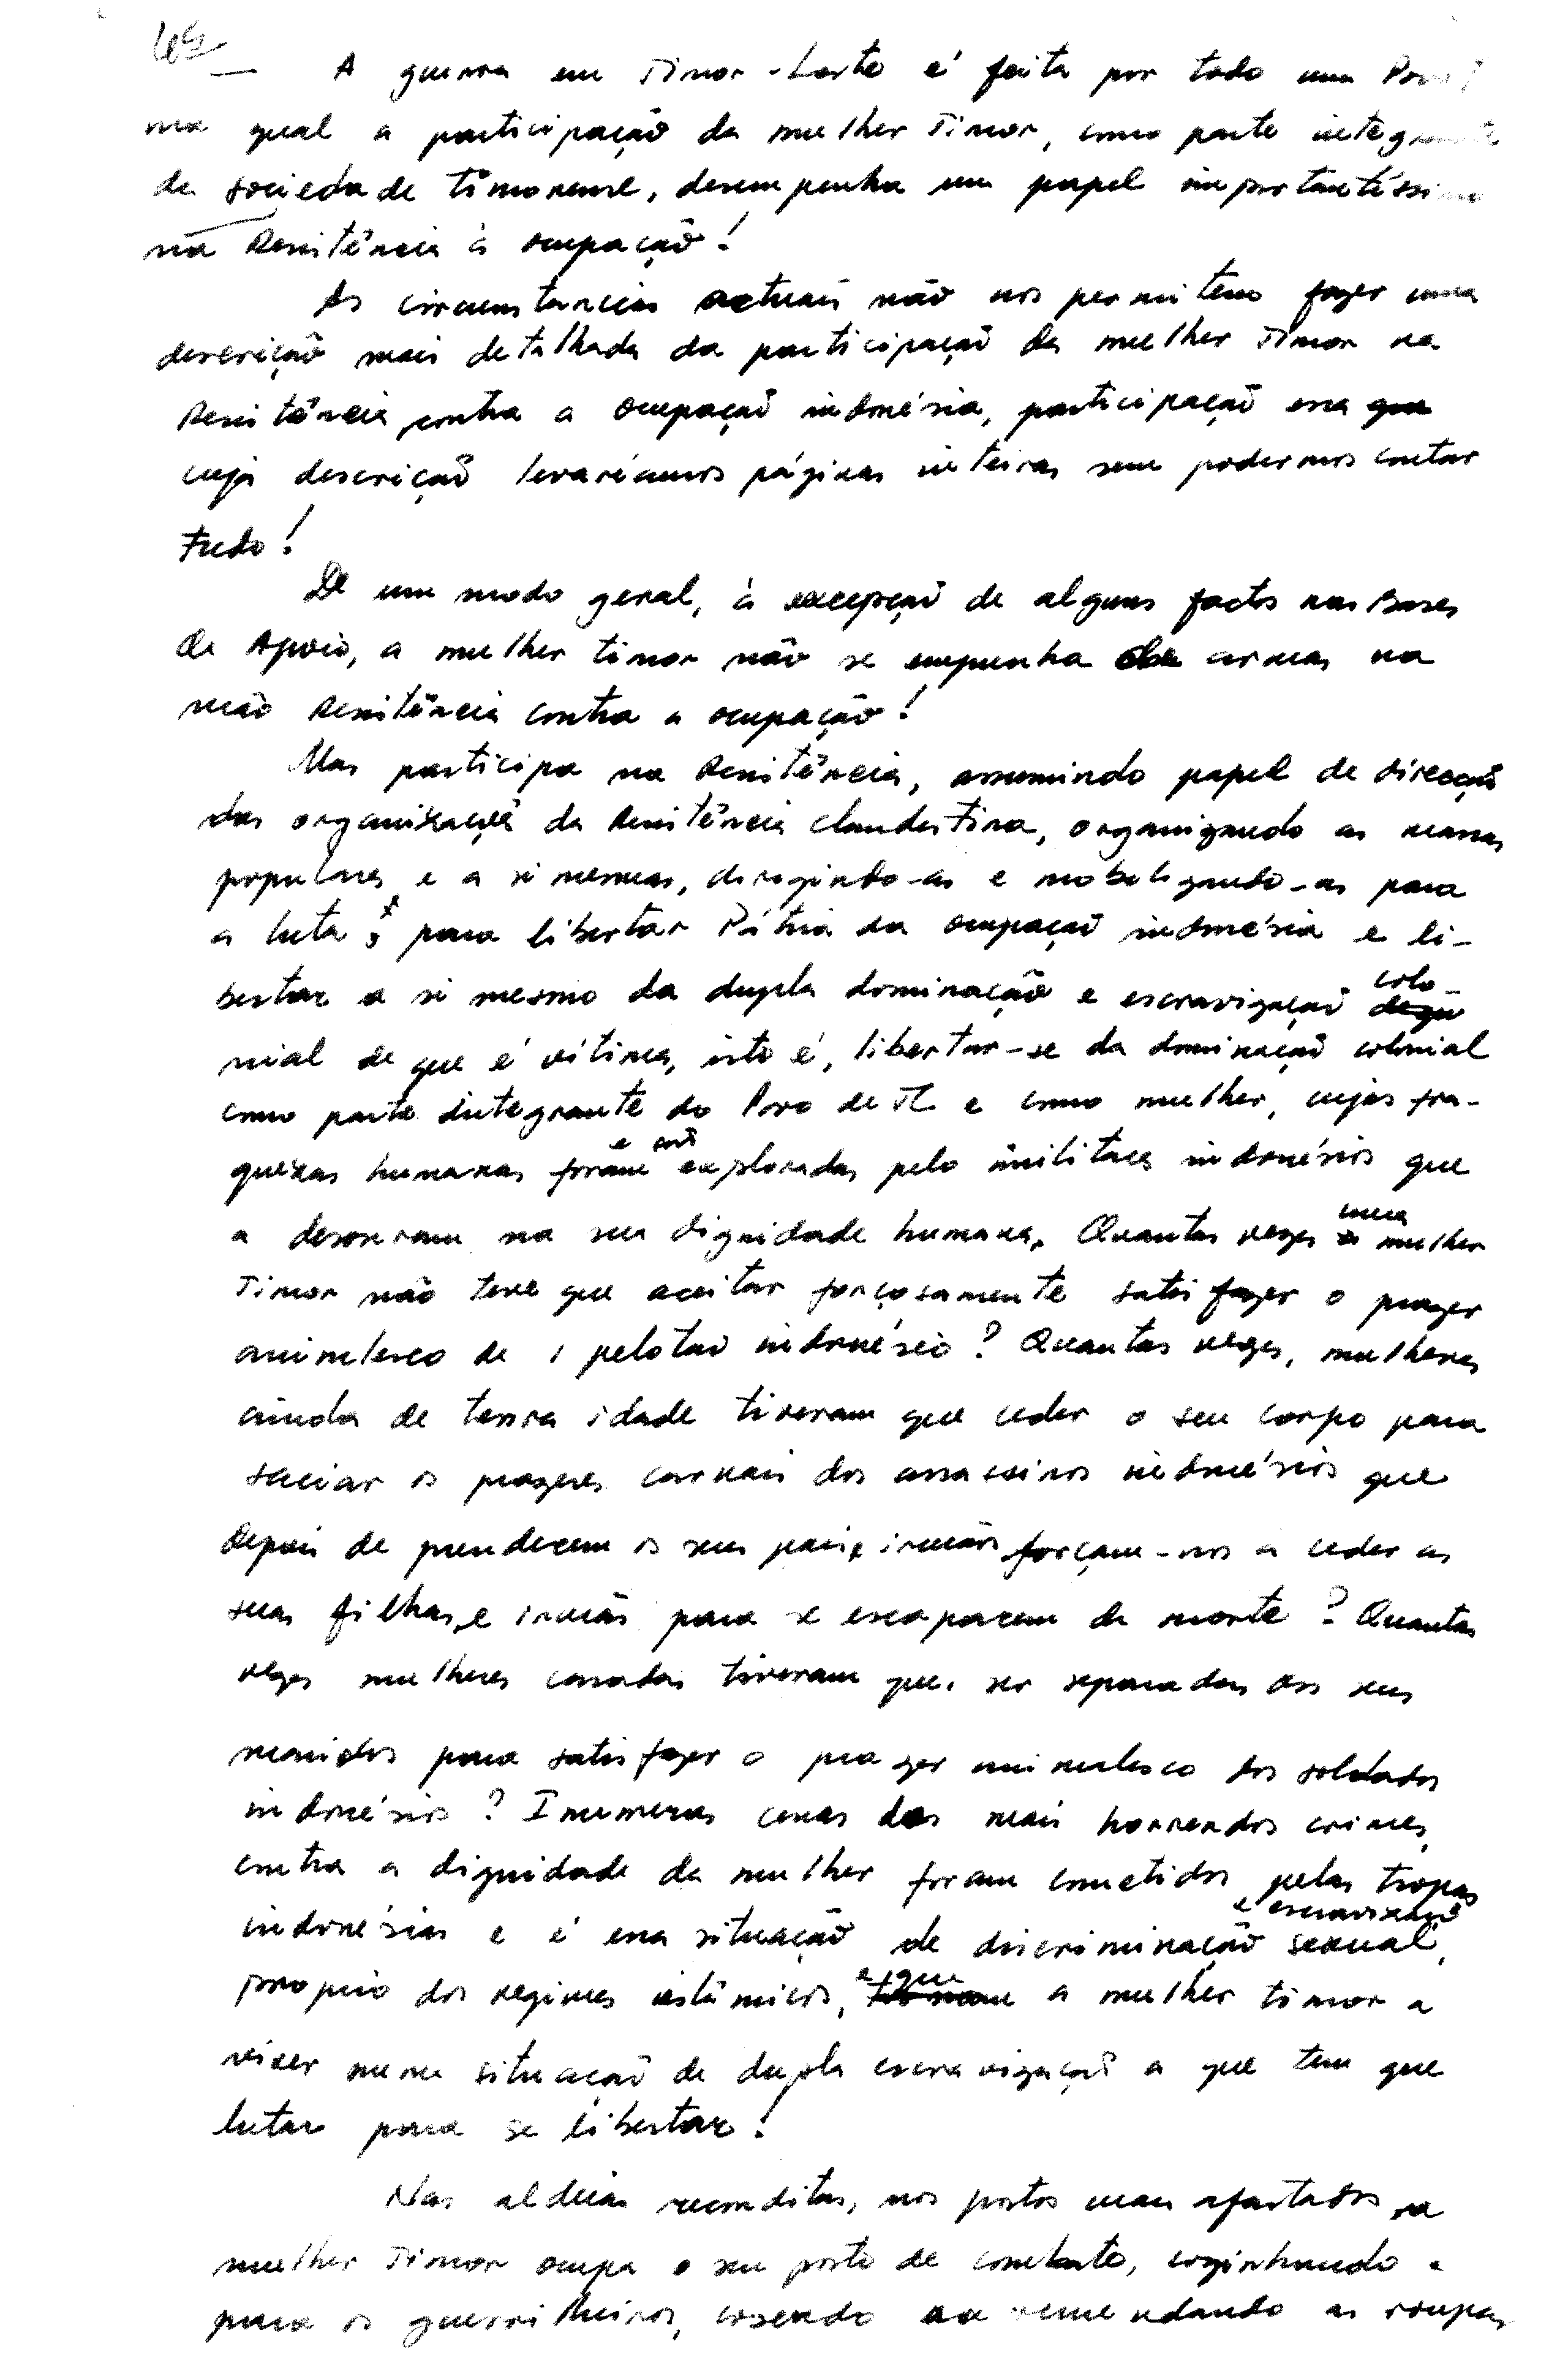 A guerra em Timor-Leste é feita por todo um Povo!
na qual a participação da mulher Timor, como parte integrante
da sociedade timorense, desempenha um papel importantíssimo
na Resistência à ocupação!
As circunstâncias actuais não nos permitem fazer uma
descrição mais detalhada da participação da mulher Timor na
Resistência contra a ocupação indonésia, participação essa
cuja descrição levaríamos páginas inteiras sem podermos contar
tudo!
De um modo geral, à excepção de alguns factos nas Bases
de Apoio, a mulher timor não se empunha armas na
Resistência contra a ocupação!
Mas participa na Resistência, assumindo papel de direcção
das organizações da Resistência clandestina, organizando as massas
populares e a si mesmas, dirigindo-as e mobilizando-as para
a luta para libertar Pátria da ocupação indonésia e li-
bertar a si mesmo da dupla dominação e escravização colo-
nial de que é vítima, isto é, libertar-se da dominação colonial
como parte integrante do Povo de TL e como mulher, cujas fra-
quezas humanas foram e são exploradas pelo militares indonésios que
a desonram na sua dignidade humana. Quantas vezes uma mulher
Timor não teve que aceitar forçosamente satisfazer o prazer
animalesco de 1 pelotão indonésio? Quantas vezes, mulheres
ainda de tenra idade tiveram que ceder o seu corpo para
saciar os prazeres carnais dos assassinos indonésios que
depois de prenderem os seus pais e irmãos forçam-nos a ceder as
suas filhas e irmãs para se escaparem da morte? Quantas
vezes mulheres casadas tiveram que ser separadas dos seus
maridos para satisfazer o prazer animalesco dos soldados
indonésios? Inumeras cenas dos mais horrendos crimes
contra a dignidade da mulher foram cometidos pelas tropas
indonésias e é essa situação de discriminação e escravização sexual,
proprio dos regimes islâmicos, a mulher timor a
viver numa situação de dupla escravização a que tem que
lutar para se libertar!
Nas aldeias reconditas, nos postos mais afastados, a
mulher Timor ocupa o seu posto de combate, cozinhando
para os guerrilheiros, cosendo remendando as roupas